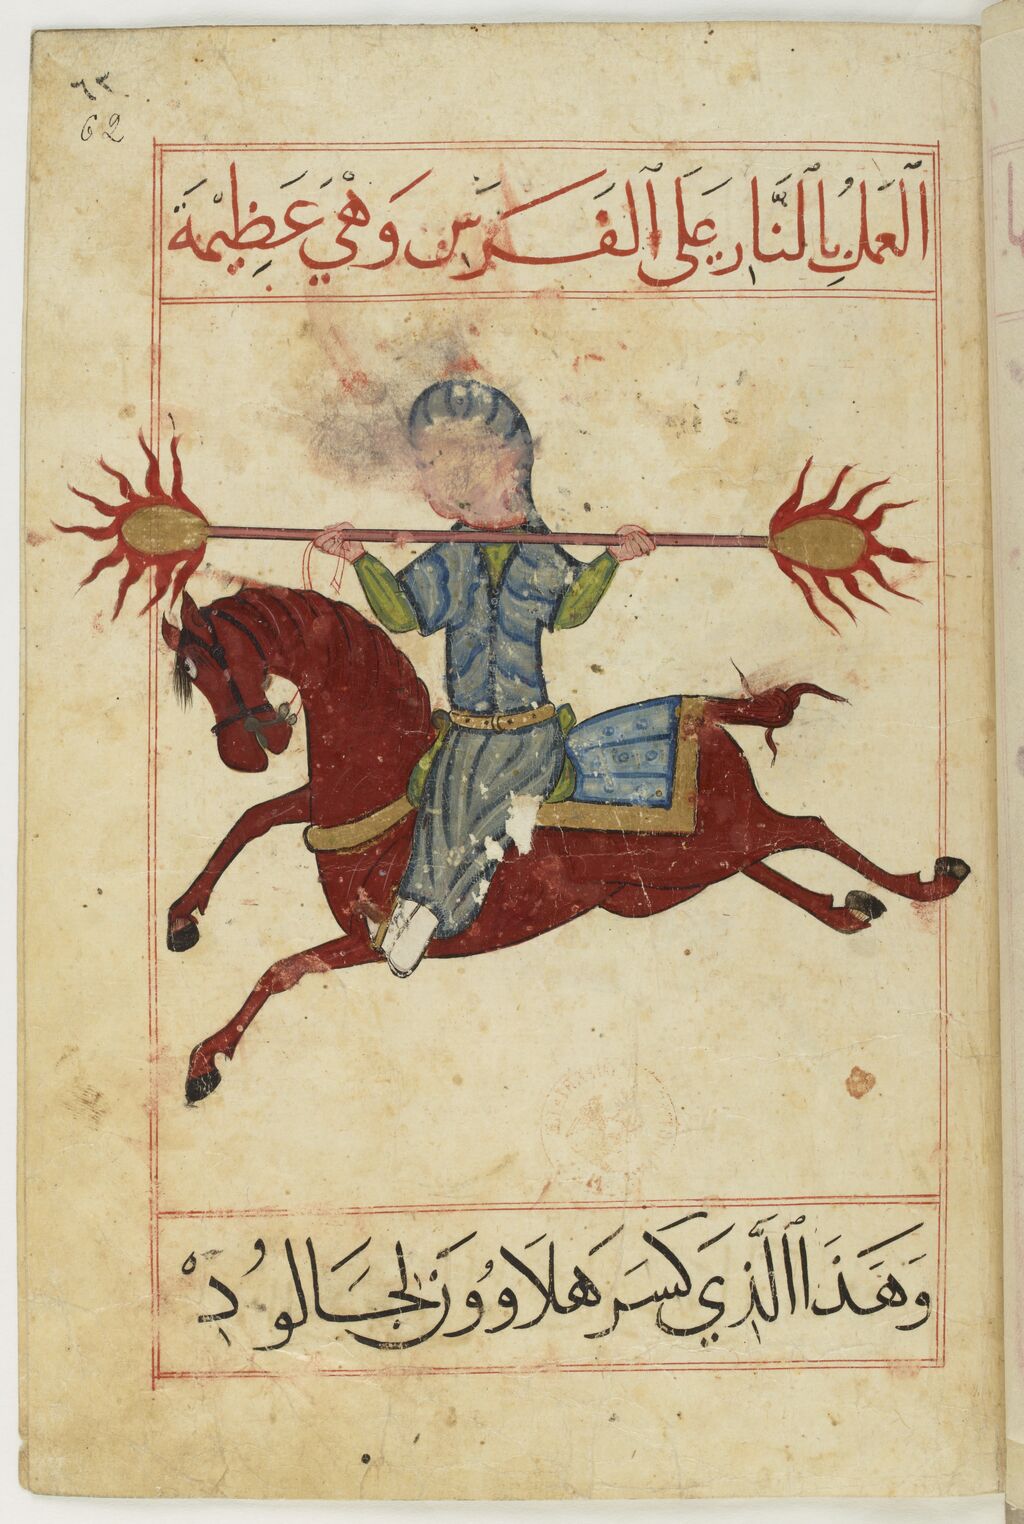 ٦٢
62
العَمَلُ بِالنَّارِ عَلَى الفَرَسِ وَهْيَ عَظِيمَة
وَهَذَا الَّذِي كَسَرَ هَلَاوُوَن الجَالُودِ